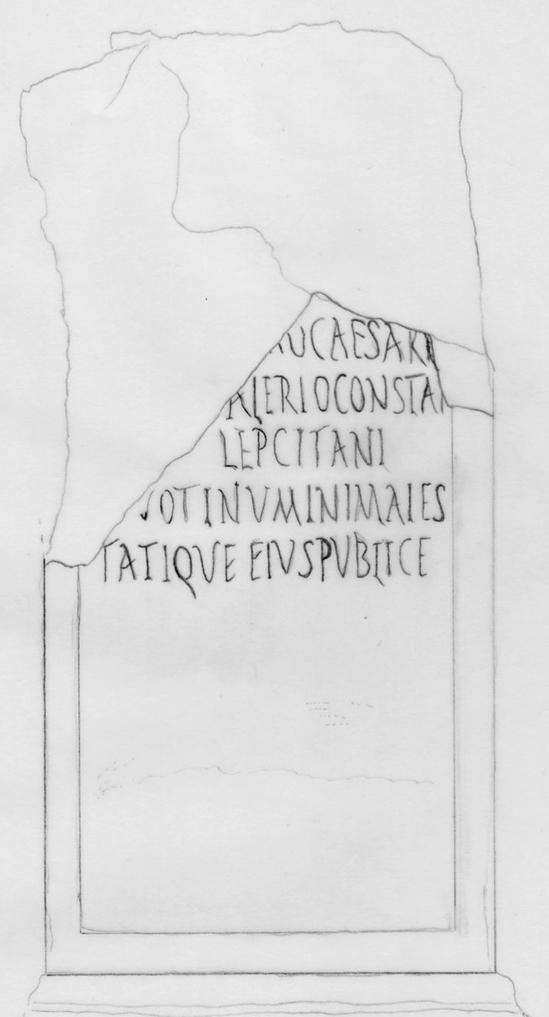 CAESARI
ALERIO CONSTAN
LEPCITANI
VOTI NVMINI MAIES
TATIQVE EIVS PVBLICE